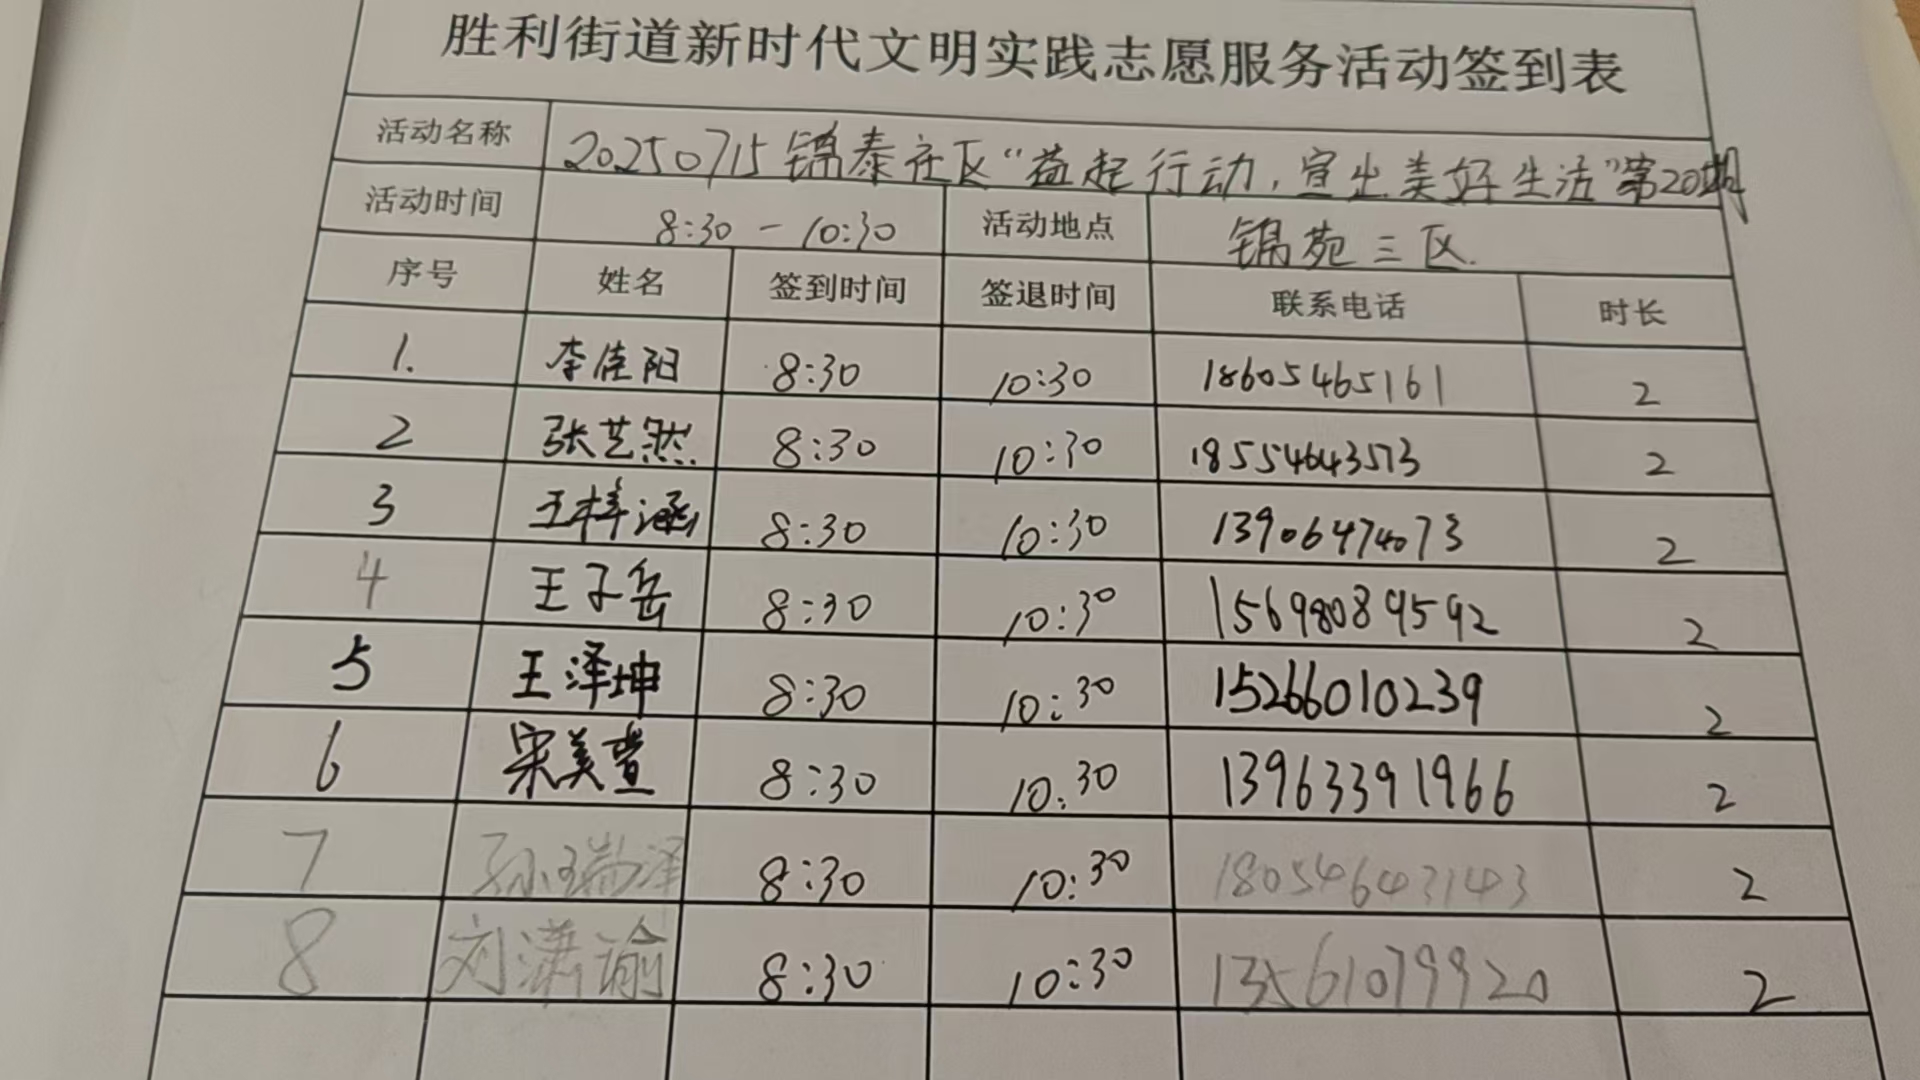 胜利街道新时代文明实践志愿服务活动签到表
活动名称 20250715 锦泰社区“益起行动，宜出美好生活”第20期
活动时间 8:30 - 10:30 活动地点 锦苑三区.
序号 姓名 签到时间 签退时间 联系电话 时长
1. 李佳阳 8:30 10:30 18605465161 2
2 张艺然 8:30 10:30 18554643573 2
3 王梓涵 8:30 10:30 13906474073 2
4 王子岳 8:30 10:30 15698089592 2
5 王泽坤 8:30 10:30 15266010239 2
6 宋美萱 8:30 10:30 13963391966 2
7 孙瑞泽 8:30 10:30 18054643143 2
8 刘潇谕 8:30 10:30 13561079920 2